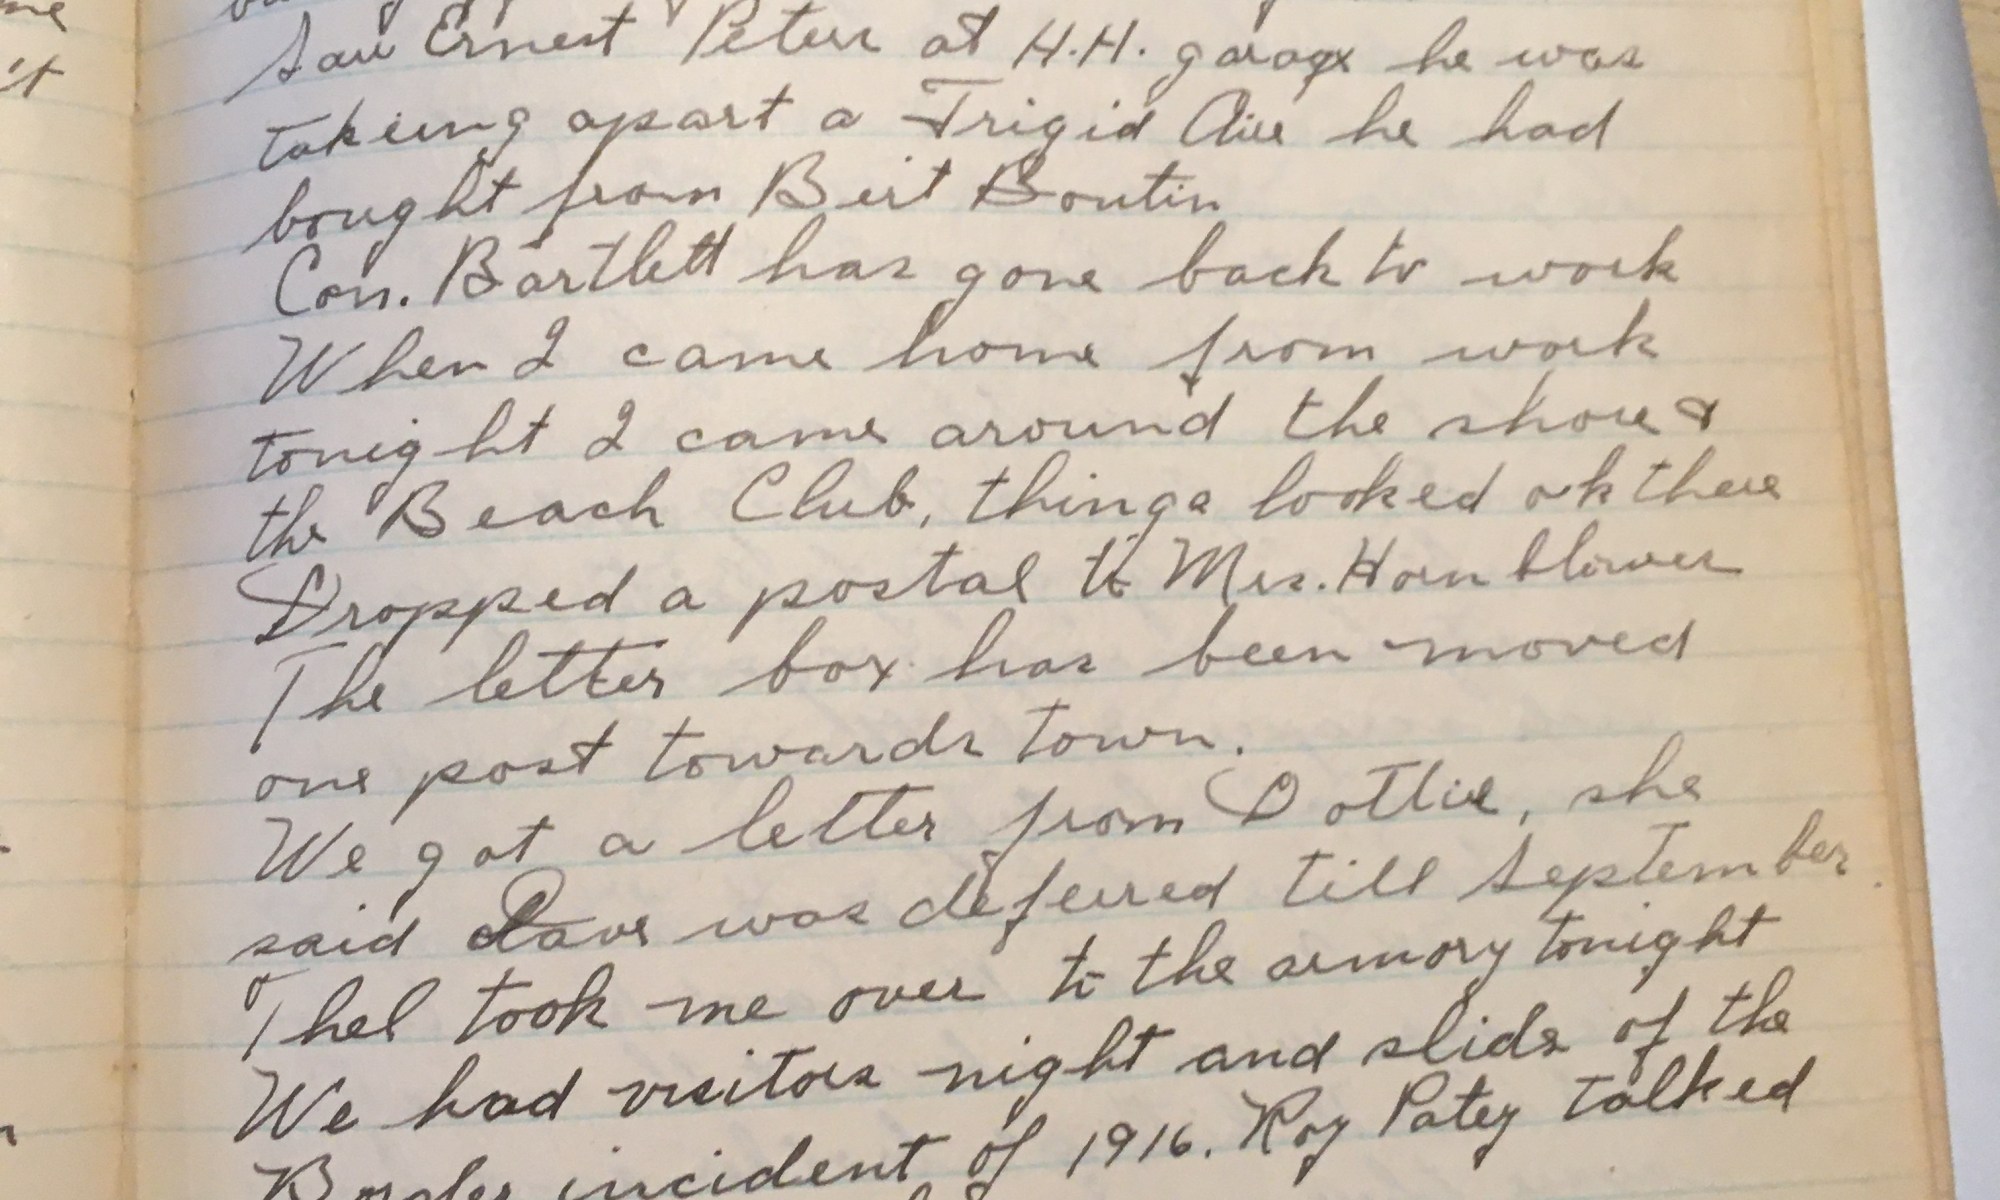 Saw Ernest Peters at H.H. garage he was
takeing apart a Frigid Aire he had
bought from Bert Boutin
Con. Bartlett has gone back to work
When I came home from work
tonight I came around the shore &
the Beach Club, things looked ok there
Dropped a postal to Mrs. Hornblower
The letter box has been moved
one post towards town.
We got a letter from Dottie, she
said Dave was deferred till September
Thel took me over to the armory tonight
We had visitors night and slids of the
Border incident of 1916. Roy Patey talked